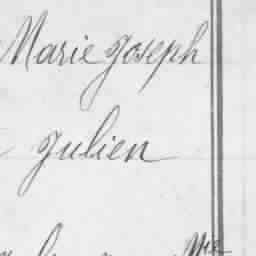 Marie Joseph
Julien